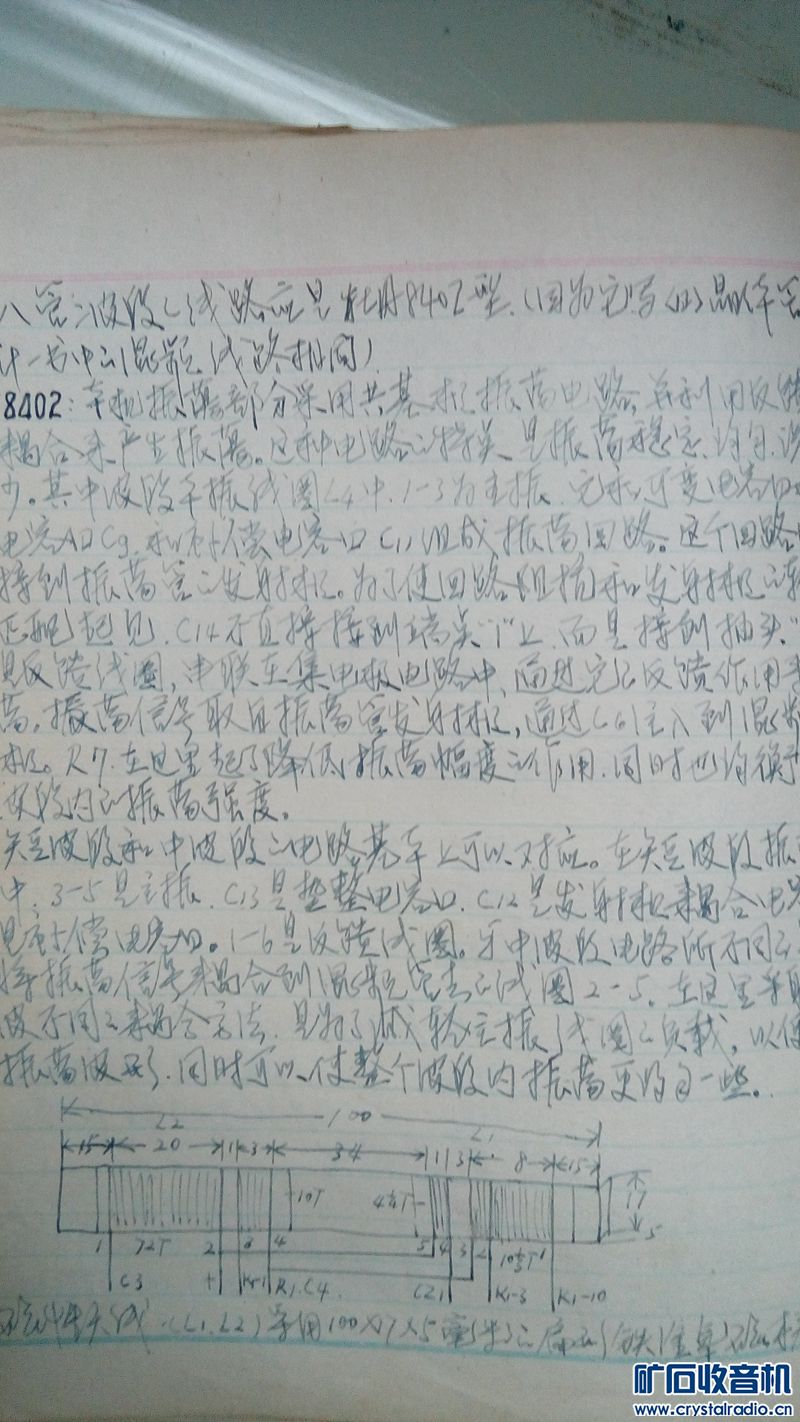 八管二波段(线路应是牡丹8402型.(因为它与
计一书中的混频线路相同)
8402:本机振荡部分采用共基极振荡电路,并利用反馈
耦合来产生振荡。这种电路的特点是振荡稳定、均匀、
少。其中波段本振线圈L4中,1-3为主振,它和可变电容口
电容口C9和补偿电容口C11组成振荡回路。这个回路
接到振荡管的发射极。为了使回路阻抗和发射极的
匹配起见,C14不直接接到端点"1"上,而是接到抽头"
是反馈线圈,串联在集电极电路中,通过它的反馈作用
荡。振荡信号取自振荡管发射极,通过C6注入到混频
极。R7.在这里起了降低振荡幅度的作用.同时也均衡
波段内的振荡强度。
短波段和中波段的电路基本上可以对应。在短波段振
中,3-5是主振.C13是垫整电容口.C12是发射极耦合电容
是补偿电容口。1-6是反馈线圈。与中波段电路所不同的
将振荡信号耦合到混频管去的线圈2-5,在这里采取
波不同的耦合方法,是为了减轻主振线圈的负载,以使
振荡波形,同时可以使整个波段内振荡更均匀一些。
L2 100 L1
15 20 1 3 34 1 3 8 15
10T 17 5
1 72T 2 4 5 4 3 2
C3 + R1.C4 K1-3 K1-10
磁性天线(L1.L2)采用100×17×5毫米的扁形
矿石收音机
www.crystalradio.cn